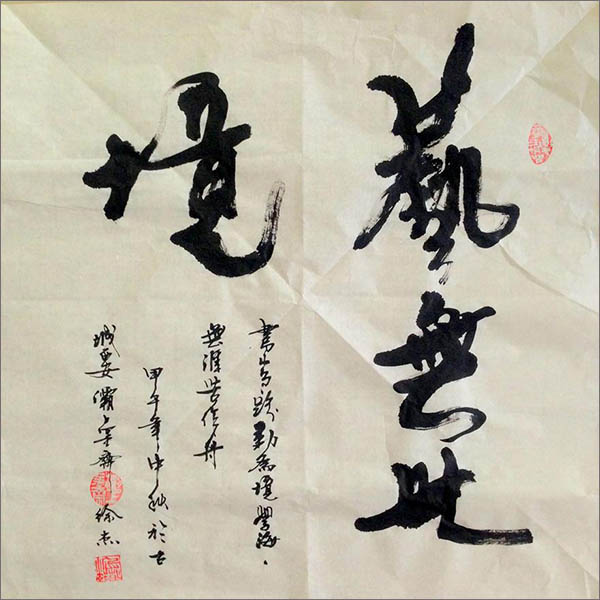 藝無止
境
書山有路勤為境學海
無涯苦作舟
甲午年中秋於古
城西安灞上齋 徐杰